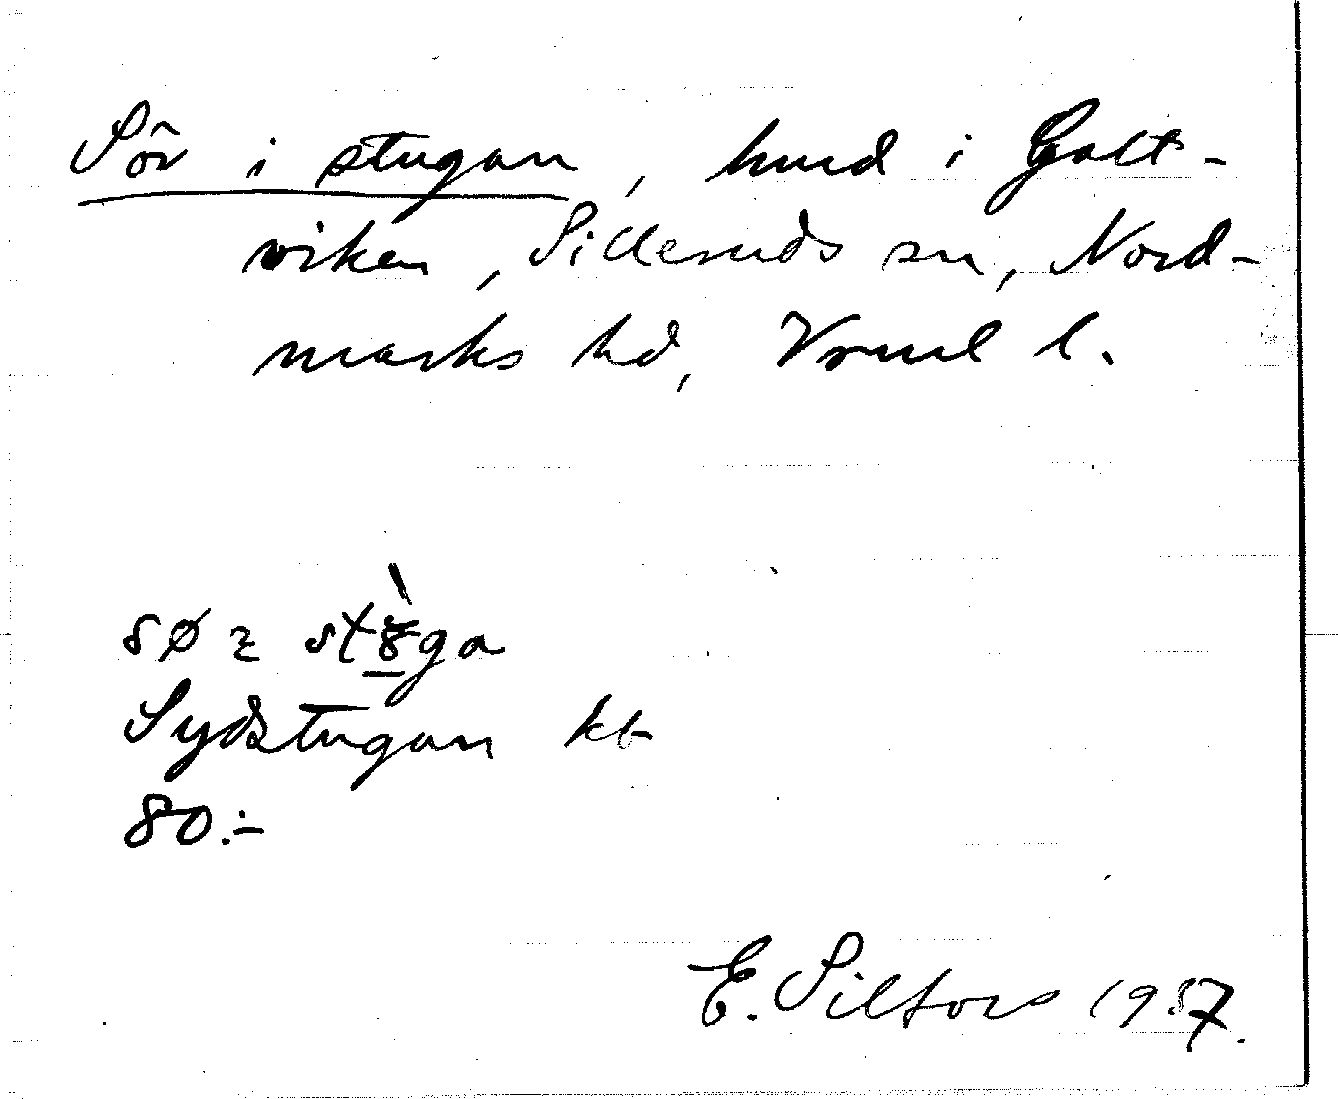 Sör i stugan, hmd i Galt-
viken, Silleruds sn, Nord-
marks hd, Vrml l.
søz stɤ̀ga
Sydstugan kb
80:-
E. Silfors 1937.